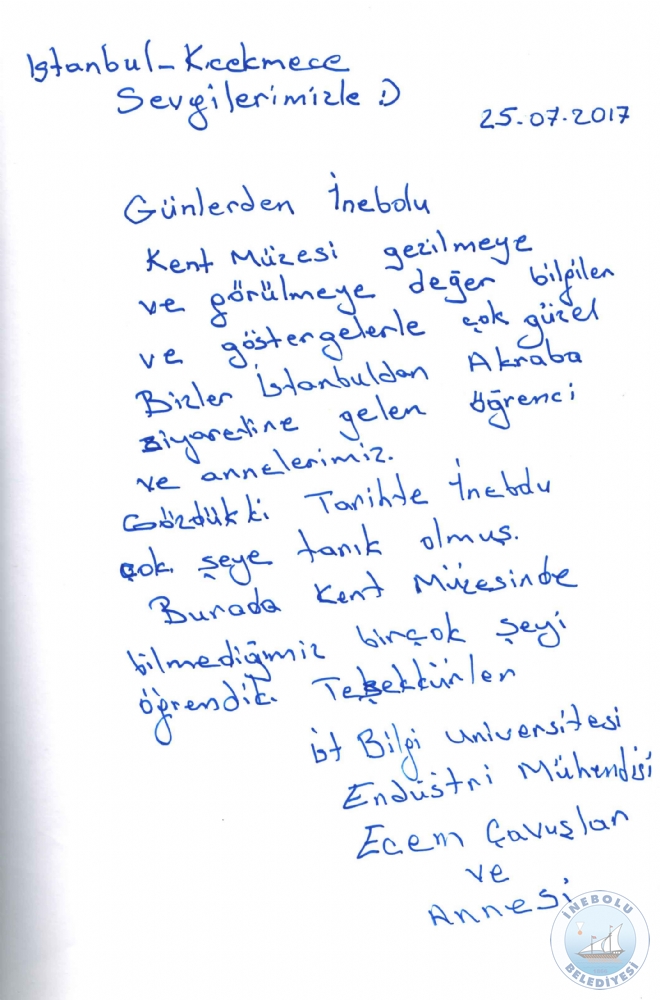 Istanbul-Kçekmece
Sevgilerimizle :)
25.07.2017
Günlerden İnebolu
Kent Müzesi gezilmeye
ve görülmeye değer bilgiler
ve göstergelerle çok güzel
Bizler İstanbuldan Akraba
ziyaretine gelen öğrenci
ve annelerimiz.
Gözdükki Tarihte İnebolu
çok şeye tanık olmuş.
Burada Kent Müzesinde
bilmediğmiz birçok şeyi
öğrendik. Teşekkürler
İst Bilgi üniversitesi
Endüstri Mühendisi
Ecem Çavuşlar
ve
Annesi
İNEBOLU
BELEDİYESİ